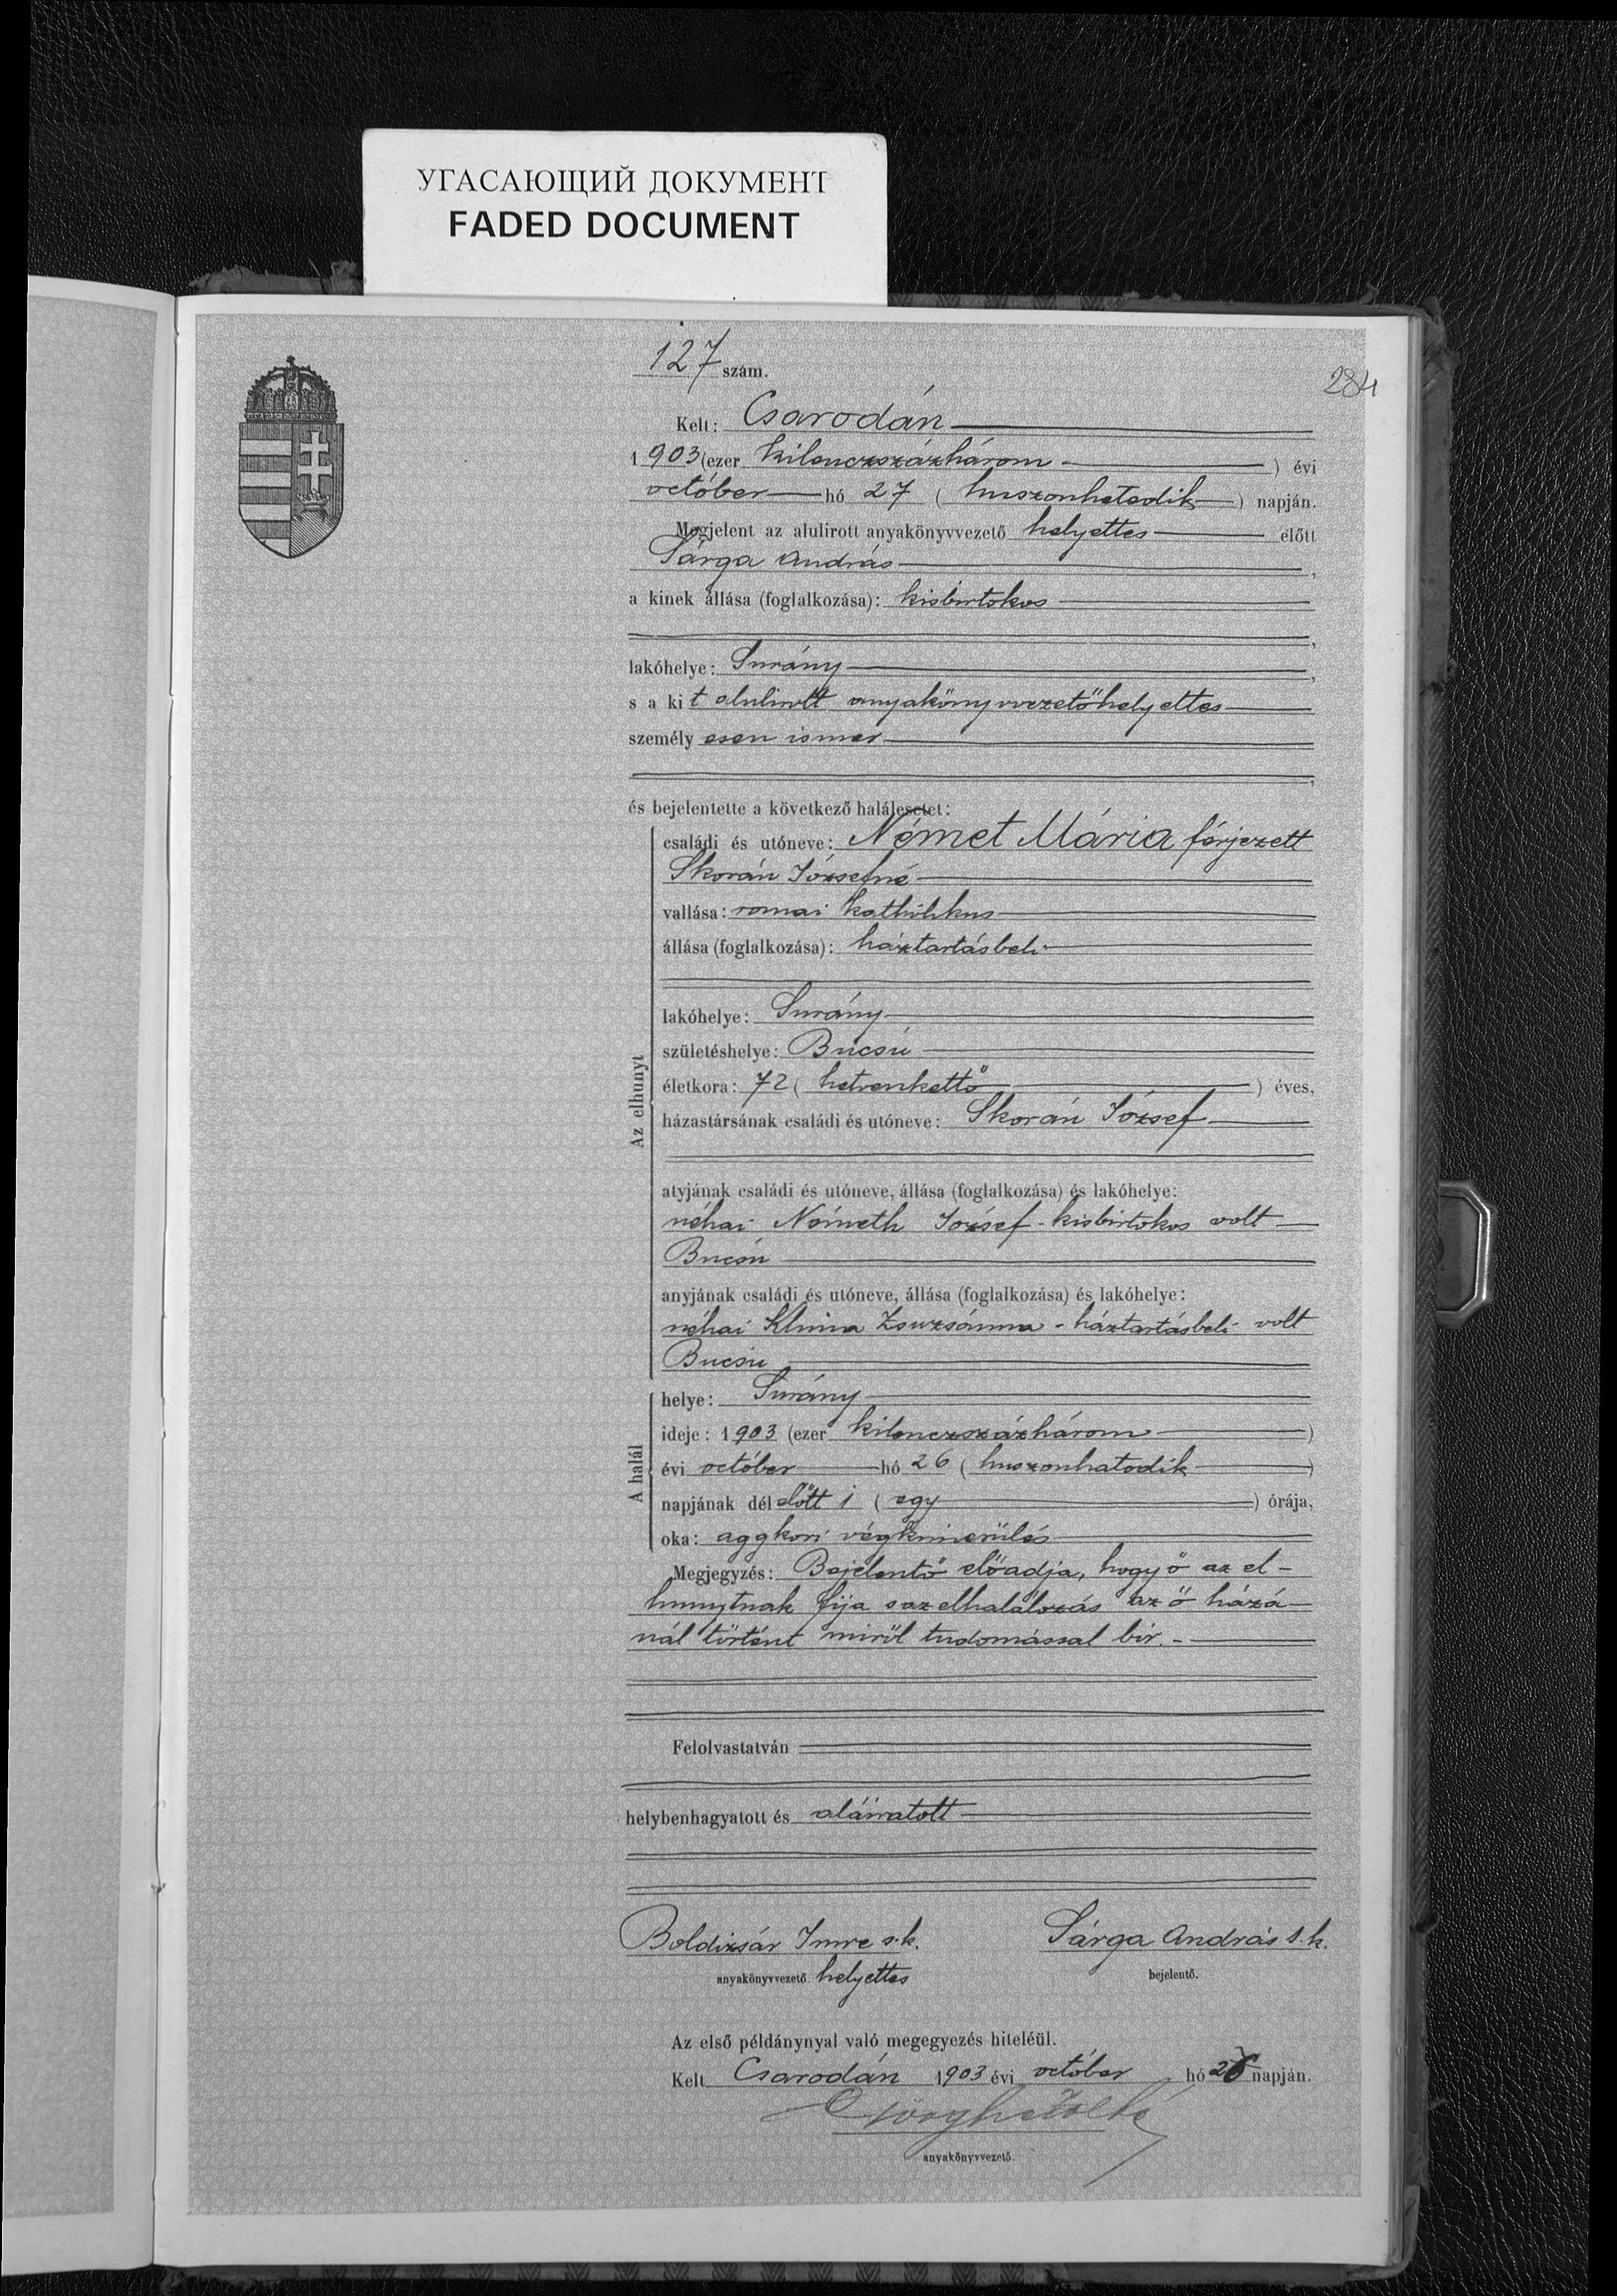 УГАСАЮЩИЙ ДОКУМЕНТ
FADED DOCUMENT
127 szám.
284
Kelt: Csarodán
1903 (ezer kilenczszázhárom) évi
október hó 27 (huszonhetedik) napján.
Megjelent az alulirott anyakönyvvezető helyettes előtt
Sárga András,
a kinek állása (foglalkozása): kisbirtokos
,
lakóhelye: Surány,
s a kit alulirott anyakönyvvezetőhelyettes
személyesen ismer
,
és bejelentette a következő halálesetet:
Az elhunyt
családi és utóneve: Német Mária férjezett
Skorán Józsefné
vallása: romai katholikus
állása (foglalkozása): háztartásbeli
lakóhelye: Surány
születéshelye: Bucsú
életkora: 72 (hetvenkettő) éves,
házastársának családi és utóneve: Skorán József
atyjának családi és utóneve, állása (foglalkozása) és lakóhelye:
néhai Németh József - kisbirtokos volt
Bucsú
anyjának családi és utóneve, állása (foglalkozása) és lakóhelye:
néhai Zsuzsánna - háztartásbeli volt
Bucsú
A halál
helye: Surány
ideje: 1903 (ezer kilenczszázhárom)
évi október hó 26 (huszonhatodik)
napjának délelőtt 1 (egy) órája,
oka: aggkori végkimerülés
Megjegyzés: Bejelentő előadja, hogy ő az el-
hunytnak fija s az elhalálozás az ő házá-
nál történt miről tudomással bir. -
Felolvastatván
helybenhagyatott és aláiratott
Boldizsár Imre s.k. Sárga András s.k.
anyakönyvvezető helyettes bejelentő.
Az első példánynyal való megegyezés hiteléül.
Kelt Csarodán 1903 évi október hó napján.
anyakönyvvezető.